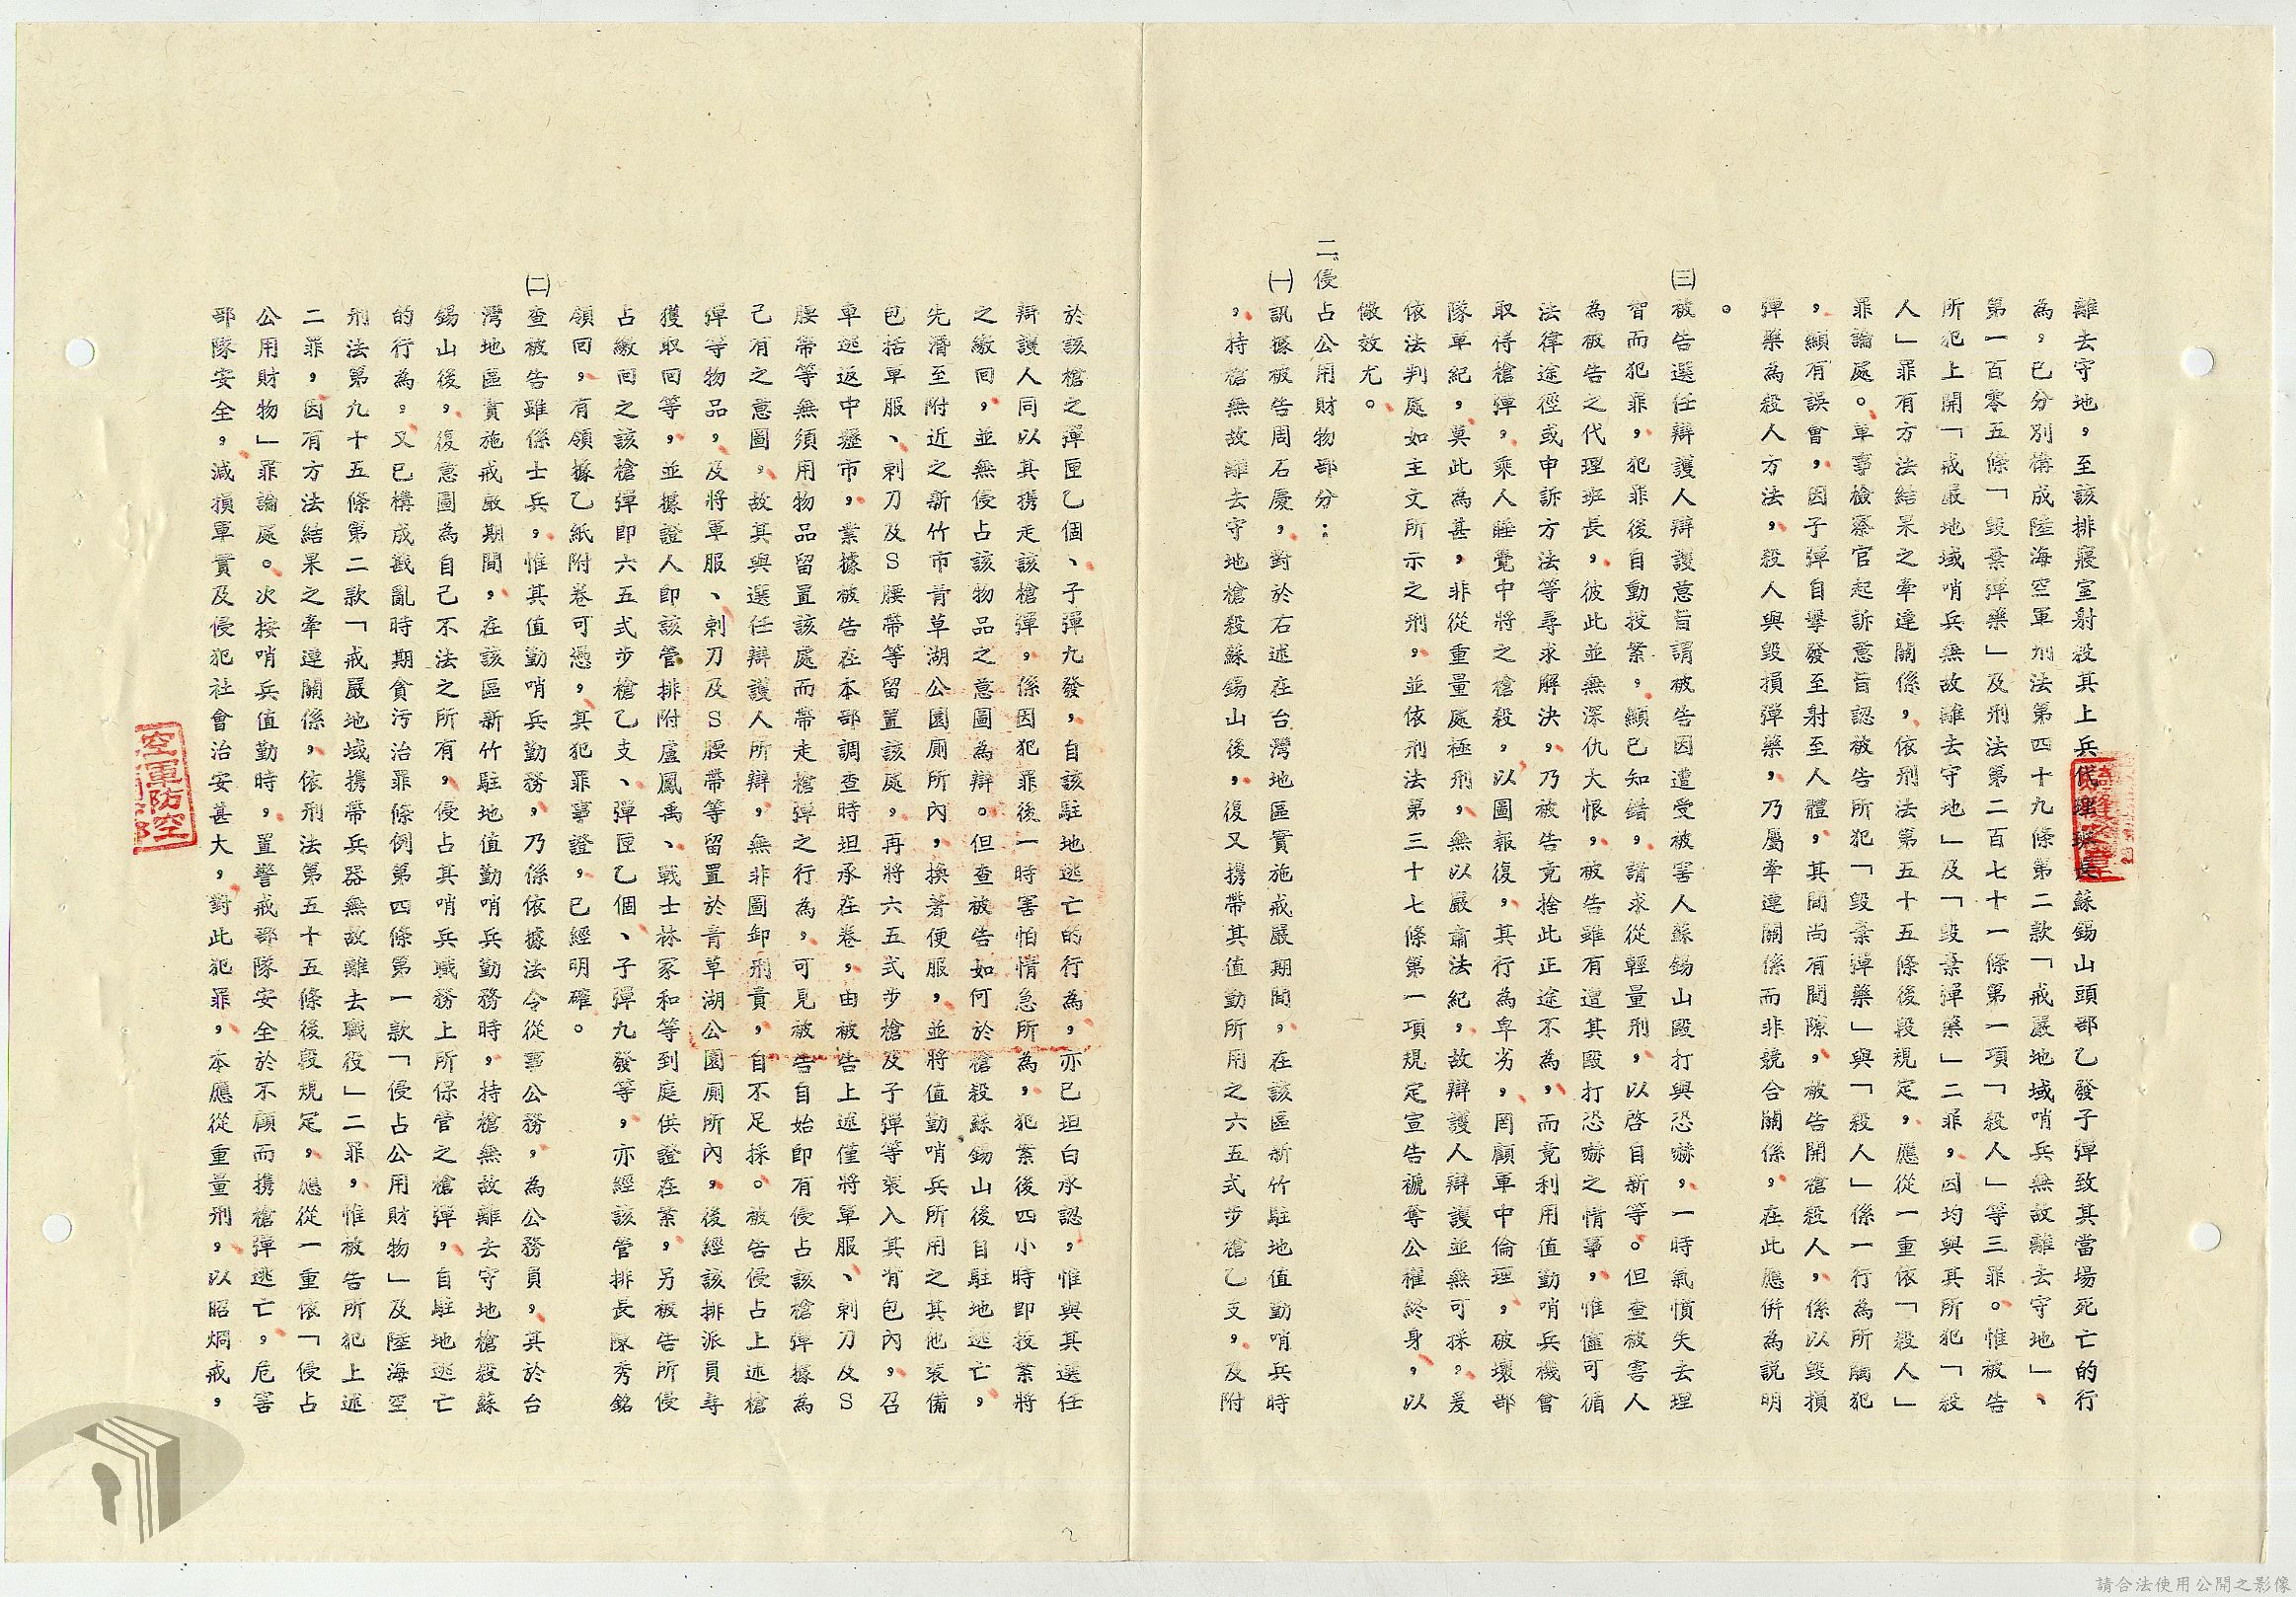 離去守地，至該排寢室射殺其上兵代理班長蘇錫山頭部乙發子彈致其當場死亡的行
為，已分別構成陸海空軍刑法第四十九條第二款「戒嚴地域哨兵無故離去守地」、
第一百零五條「毀棄彈藥」及刑法第二百七十一條第一項「殺人」等三罪。惟被告
所犯上開「戒嚴地域哨兵無故離去守地」及「毀棄彈藥」二罪，因均與其所犯「殺
人」罪有方法結果之牽連關係，依刑法第五十五條後段規定，應從一重依「殺人」
罪論處。軍事檢察官起訴意旨認被告所犯「毀棄彈藥」與「殺人」係一行為所觸犯
，顯有誤會，因子彈自擊發至射至人體，其間尚有間隙，被告開槍殺人，係以毀損
彈藥為殺人方法，殺人與毀損彈藥，乃屬牽連關係而非競合關係，在此應併為說明
。
㈢被告選任辯護人辯護意旨謂被告因遭受被害人蘇錫山毆打與恐嚇，一時氣憤失去理
智而犯罪，犯罪後自動投案，顯已知錯，請求從輕量刑，以啓自新等。但查被害人
為被告之代理班長，彼此並無深仇大恨，被告雖有遭其毆打恐嚇之情事，惟儘可循
法律途徑或申訴方法等尋求解決，乃被告竟捨此正途不為，而竟利用值勤哨兵機會
取得槍彈，乘人睡覺中將之槍殺，以圖報復，其行為卑劣，罔顧軍中倫理，破壞部
隊軍紀，莫此為甚，非從重量處極刑，無以嚴肅法紀，故辯護人辯護並無可採，爰
依法判處如主文所示之刑，並依刑法第三十七條第一項規定宣告褫奪公權終身，以
儆效尤。
二、侵占公用財物部分：
㈠訊據被告周石慶，對於右述在台灣地區實施戒嚴期間，在該區新竹駐地值勤哨兵時
，持槍無故離去守地槍殺蘇錫山後，復又携帶其值勤所用之六五式步槍乙支，及附
於該槍之彈匣乙個、子彈九發，自該駐地逃亡的行為，亦已坦白承認，惟與其選任
辯護人同以其携走該槍彈，係因犯罪後一時害怕情急所為，犯案後四小時即投案將
之繳回，並無侵占該物品之意圖為辯。但查被告如何於槍殺蘇錫山後自駐地逃亡，
先潛至附近之新竹市青草湖公園廁所內，換著便服，並將值勤哨兵所用之其他裝備
包括軍服、刺刀及Ｓ腰帶等留置該處，再將六五式步槍及子彈等裝入其背包內，召
車逃返中壢市，業據被告在本部調查時坦承在卷，由被告上述僅將軍服、刺刀及Ｓ
腰帶等無須用物品留置該處而帶走槍彈之行為，可見被告自始即有侵占該槍彈據為
己有之意圖，故其與選任辯護人所辯，無非圖卸刑責，自不足採。被告侵占上述槍
彈等物品，及將軍服、刺刀及Ｓ腰帶等留置於青草湖公園廁所內，後經該排派員尋
獲取回等，並據證人即該管排附盧鳳禹、戰士林冢和等到庭供證在案，另被告所侵
占繳回之該槍彈即六五式步槍乙支、彈匣乙個、子彈九發等，亦經該管排長陳秀銘
領回，有領據乙紙附卷可憑，其犯罪事證，已經明確。
㈡查被告雖係士兵，惟其值勤哨兵勤務，乃係依據法令從事公務，為公務員，其於台
灣地區實施戒嚴期間，在該區新竹駐地值勤哨兵勤務時，持槍無故離去守地槍殺蘇
錫山後，復意圖為自己不法之所有，侵占其哨兵職務上所保管之槍彈，自駐地逃亡
的行為，又已構成戡亂時期貪污治罪條例第四條第一款「侵占公用財物」及陸海空
刑法第九十五條第二款「戒嚴地域携帶兵器無故離去職役」二罪，惟被告所犯上述
二罪，因有方法結果之牽連關係，依刑法第五十五條後段規定，應從一重依「侵占
公用財物」罪論處。次按哨兵值勤時，置警戒部隊安全於不顧而携槍彈逃亡，危害
部隊安全，減損軍實及侵犯社會治安甚大，對此犯罪，本應從重量刑，以昭烱戒，
空軍防空
2
請合法使用公開之影像